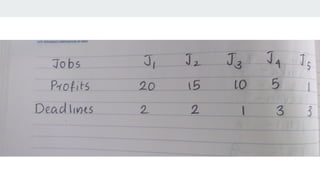 Jobs J1 J2 J3 J4 J5
Profits 20 15 10 5 1
Deadlines 2 2 1 3 3